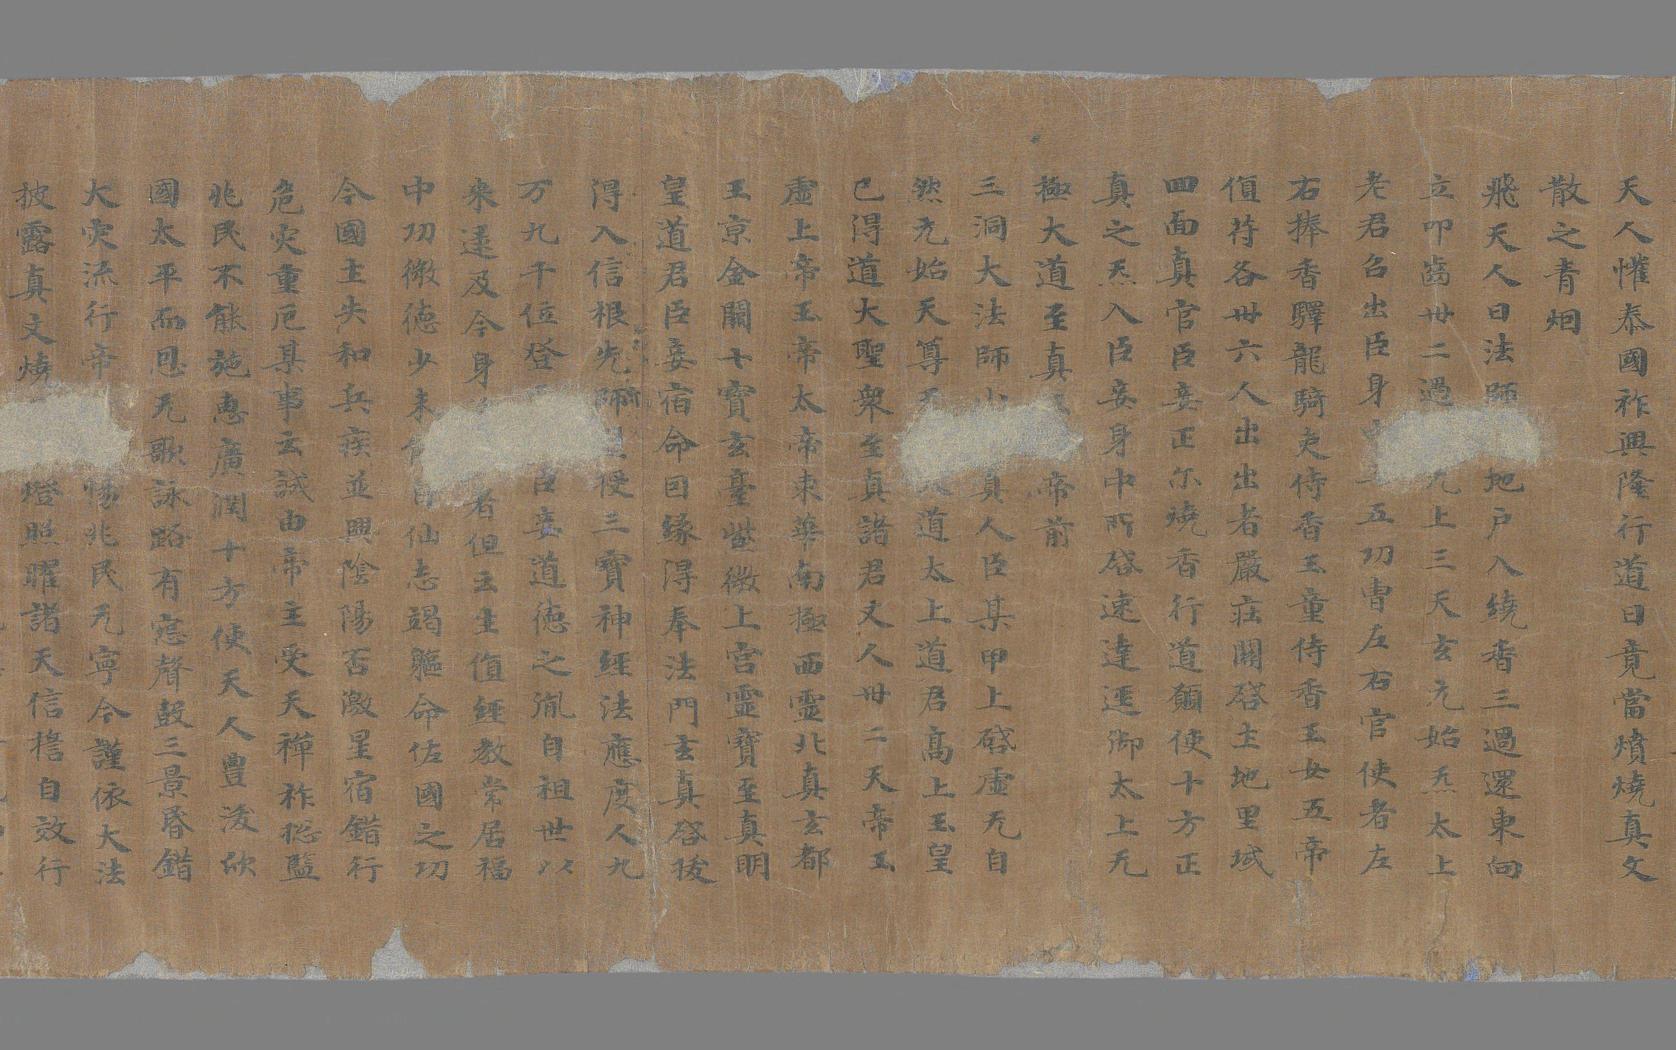 天人懽泰國祚興隆行道日竟當燌燒真文
散之青烟
飛天人曰法師地戶入繞香三過還東向
立叩齒卅二過九上三天玄元始炁太上
老君召出臣身五功曹左右官使者左
右捧香驛龍騎吏侍香玉童侍香玉女五帝
直苻各卅六人出出者嚴莊關啓土地里域
四面真官臣妾正尔燒香行道願使十方正
真之炁入臣妾身中所啓速達逕御太上无
極大道至真帝前
三洞大法師真人臣某甲上啓虛无自
然元始天尊道太上道君高上玉皇
已得道大聖衆至真諸君丈人卅二天帝玉
虛上帝玉帝太帝東華南極西靈北真玄都
玉京金闕七寶玄臺紫微上宮靈寶至真明
皇道君臣妾宿命因緣得奉法門玄真啓拔
得入信根先師授三寶神經法應度人九
万九千位登臣妾道德之胤自祖世以
来逮及今身者但立生值經教常居福
中功微德少未仙志竭軀命佐國之功
今國主失和兵疾並興陰陽否激星宿錯行
危灾重厄某事云誠由帝主受天禪祚揔監
兆民不能施惠廣潤十方使天人豊浚欣
國太平而恩无歌詠路有惌聲鼓三景昏錯
大灾流行帝惕兆民无寧今謹依大法
披露真文燒燈照曜諸天信擔自效行